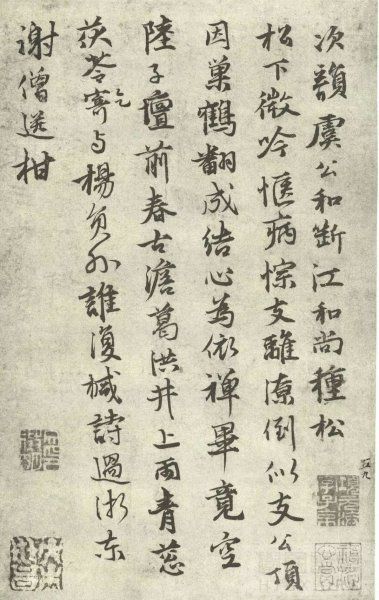 次韻虞公和斷江和尚種松
松下微吟愜病悰支離潦倒似支公頂
因巢鶴翻成結心為依禪畢竟空
陸子壇前春古澹葛洪井上雨青葱
茯苓寄与楊負外誰復椷詩過浙东
乞
謝僧送柑
五九